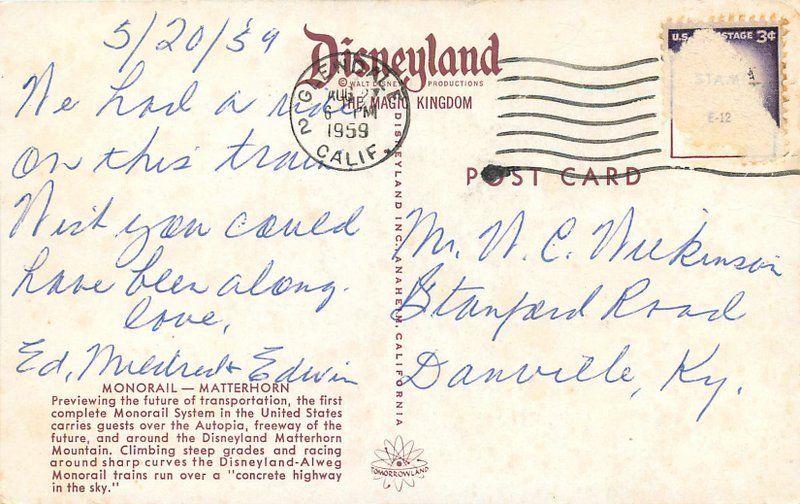 5/20/59
We had a ride
on this train
Wish you could
have been along.
love,
Ed, Mildred & Edwin
MONORAIL — MATTERHORN
Previewing the future of transportation, the first
complete Monorail System in the United States
carries guests over the Autopia, freeway of the
future, and around the Disneyland Matterhorn
Mountain. Climbing steep grades and racing
around sharp curves the Disneyland-Alweg
Monorail trains run over a "concrete highway
in the sky."
Disneyland
© WALT DISNEY PRODUCTIONS
THE MAGIC KINGDOM
GLENDALE
2
AUG 23
6 PM
1959
CALIF.
DISNEYLAND INC. ANAHEIM, CALIFORNIA
TOMORROWLAND
U.S. POSTAGE 3¢
E-12
POST CARD
Mr. W. C. Wilkinson
Stanford Road
Danville, Ky.